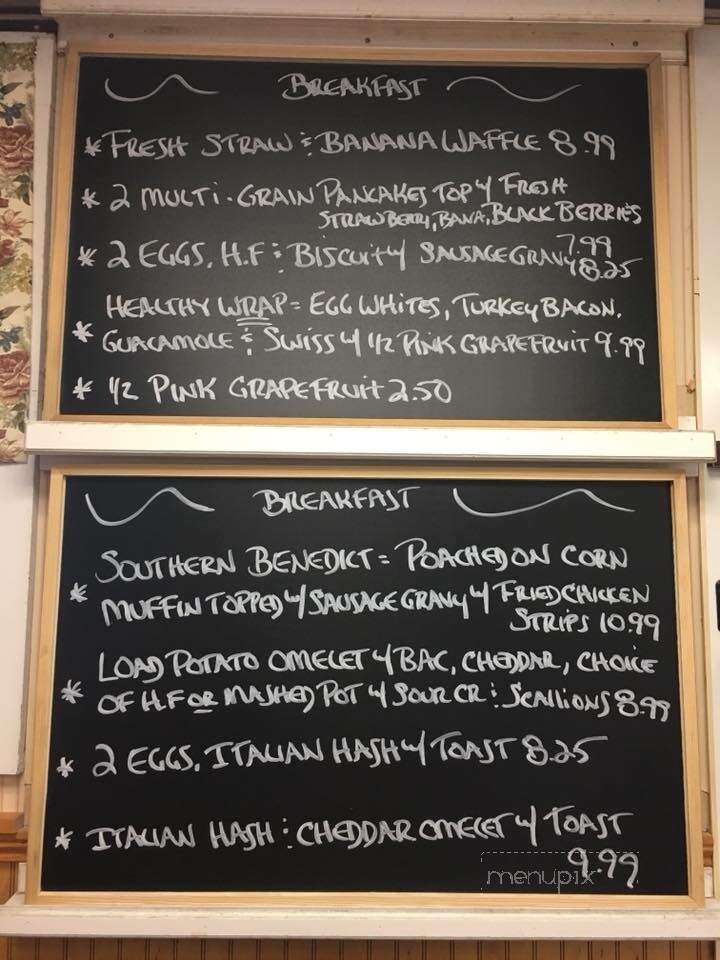 BREAKFAST
* FRESH STRAW & BANANA WAFFLE 8.99
* 2 MULTI-GRAIN PANCAKES TOP W/ FRESH
STRAWBERRI, BANA, BLACK BERRIES
7.99
* 2 EGGS, H.F & BISCUIT W/ SAUSAGE GRAVY 8.25
HEALTHY WRAP = EGG WHITES, TURKEY BACON,
* GUACAMOLE & SWISS W/ 1/2 PINK GRAPEFRUIT 9.99
* 1/2 PINK GRAPEFRUIT 2.50
BREAKFAST
SOUTHERN BENEDICT = POACHED ON CORN
* MUFFIN TOPPED W/ SAUSAGE GRAVY W/ FRIED CHICKEN
STRIPS 10.99
LOAD POTATO OMELET W/ BAC, CHEDDAR, CHOICE
* OF H.F OR MASHED POT W/ SOUR CR & SCALLIONS 8.99
* 2 EGGS, ITALIAN HASH W/ TOAST 8.25
* ITALIAN HASH & CHEDDAR OMELET W/ TOAST
9.99
menupix